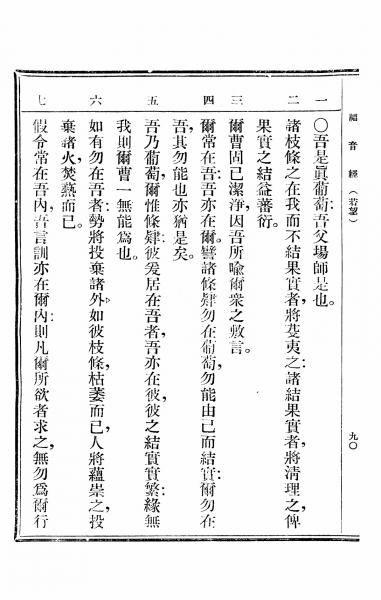 福音經（若望）
九〇
一 〇吾是眞葡萄:吾父場師是也。
二 諸枝條之在我而不結果實者,將芟夷之:諸結果實者,將淸理之,俾
果實之結益蕃衍。
三 爾曹固已潔淨,因吾所喩爾衆之敷言。
四 爾常在吾:吾亦在爾。譬諸條肄勿在葡萄,勿能由己而結實:爾勿在
吾,其勿能也亦猶是矣。
五 吾乃葡萄,爾惟條肄:彼爰居在吾者,吾亦在彼,彼之結實實繁:緣無
我則爾曹一無能爲也。
六 如有勿在吾者:勢將投棄諸外,如彼枝條,枯萎而已,人將蘊崇之,投
棄諸火,焚爇而已。
七 假令常在吾內,吾言訓亦在爾內:則凡爾所欲者求之,無勿爲爾行